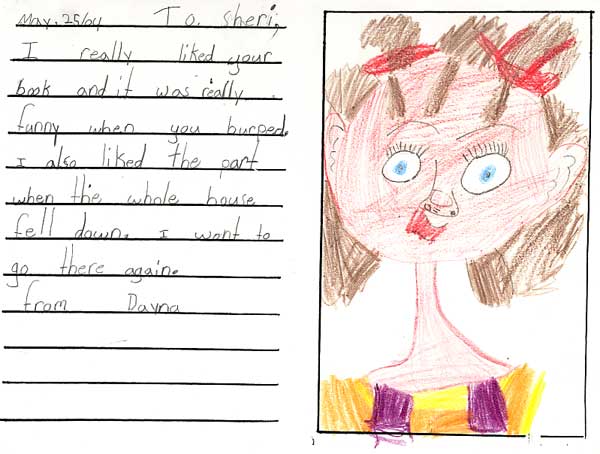 May. 25/04 To. Sheri,
I really liked your
book and it was really
funny when you burped.
I also liked the part
when the whole house
fell down. I want to
go there again.
from Dayna